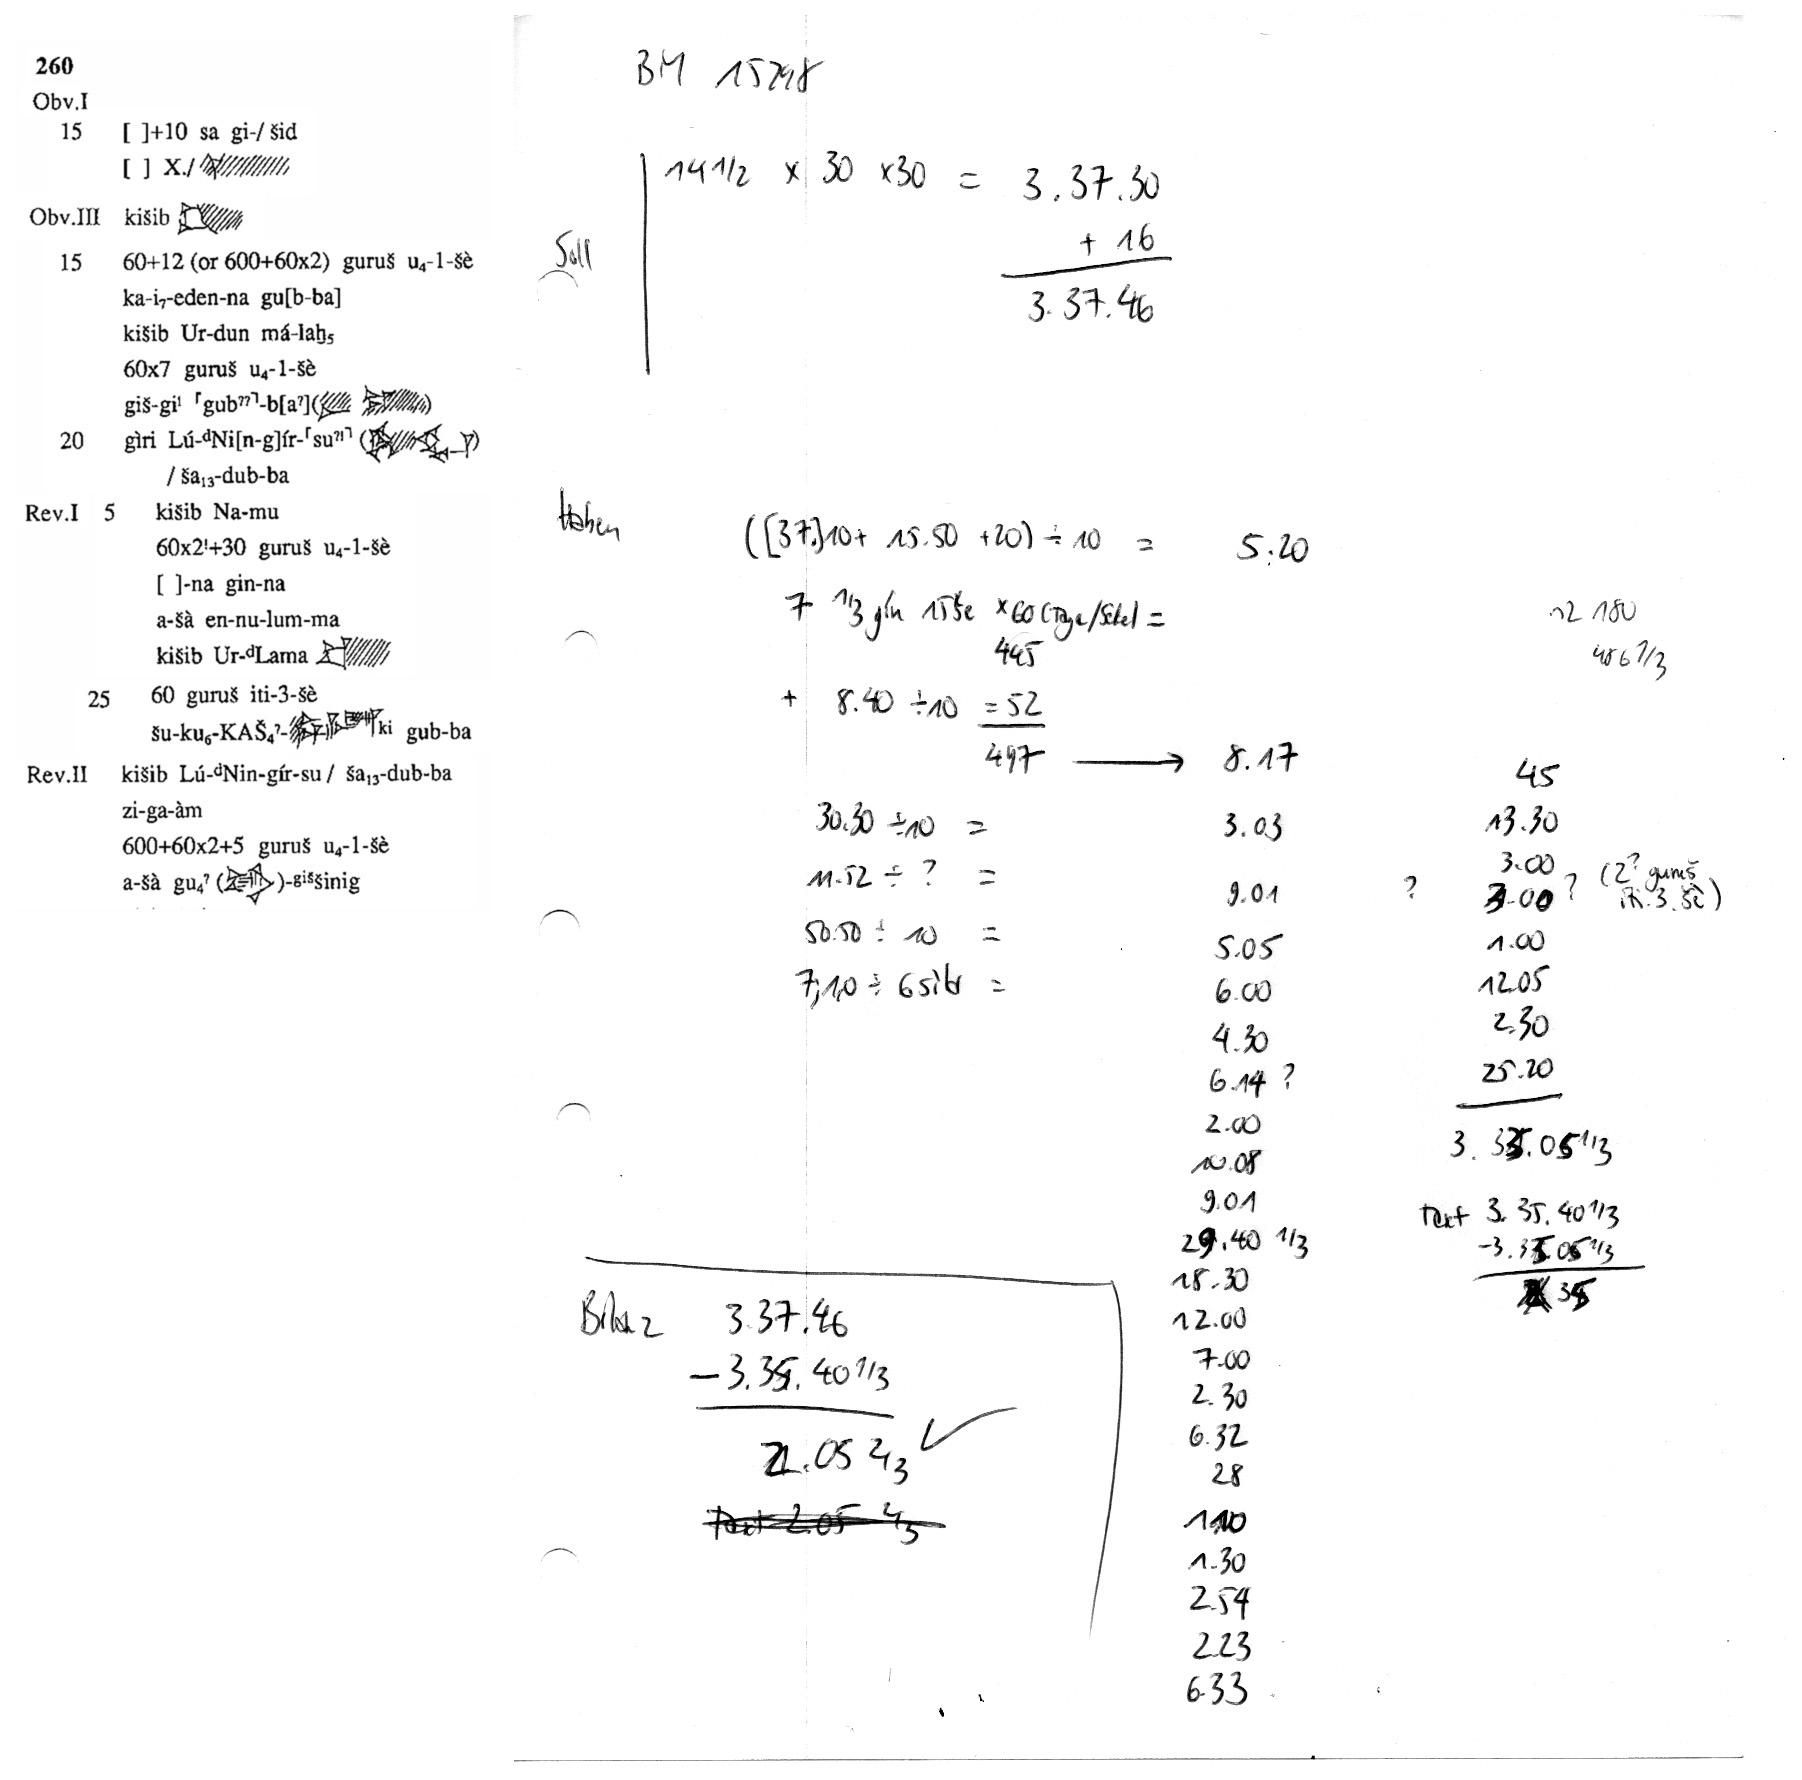 260
Obv.I
15 [ ]+10 sa gi-/ šid
[ ] X./
Obv.III kišib
15 60+12 (or 600+60x2) guruš u₄-1-šè
ka-i₇-eden-na gu[b-ba]
kišib Ur-dun má-laḫ₅
60x7 guruš u₄-1-šè
giš-gi! ⌈gub??⌉-b[a?]( )
20 gìri Lú-ᵈNi[n-g]ír-⌈su?!⌉ ( )
/ ša₁₃-dub-ba
Rev.I 5 kišib Na-mu
60x2!+30 guruš u₄-1-šè
[ ]-na gin-na
a-šà en-nu-lum-ma
kišib Ur-ᵈLama
25 60 guruš iti-3-šè
šu-ku₆-KAŠ₄?- ki gub-ba
Rev.II kišib Lú-ᵈNin-gír-su / ša₁₃-dub-ba
zi-ga-àm
600+60x2+5 guruš u₄-1-šè
a-šà gu₄? ( )-ᵍⁱˢšinig
BM 15248
Soll
14 1/2 x 30 x30 = 3.37.30
+ 16
3.37.46
Haben
([37.]10+ 15.50 +20) ÷ 10 = 5.20
7 1/3 gín 15 še x60 (Tage/Sekel =
445
+ 8.40 ÷10 = 52
497 → 8.17
30.30 ÷10 = 3.03
11.52 ÷ ? = 9.01
50.50 ÷ 10 = 5.05
7,1,0 ÷ 6 = 6.00
4.30
6.14 ?
2.00
10.08
9.01
29.40 1/3
18.30
12.00
7.00
2.30
6.32
28
1.10
1.30
2.54
2.23
6.33
180
486 1/3
45
13.30
3.00
? 3.00 ? (2? guruš iti.3.šè)
1.00
12.05
2.30
25.20
3.35.05 1/3
Text 3.35.40 1/3
-3.35.05 1/3
35
Bilanz 3.37.46
– 3.35.40 1/3
2.05 2/3 ✓
Text 2.05 2/3